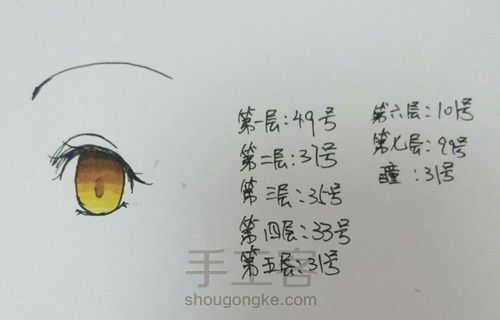 第一层：49号
第二层：37号
第三层：35号
第四层：33号
第五层：31号
第六层：101号
第七层：99号
瞳：31号
手工客
shougongke.com